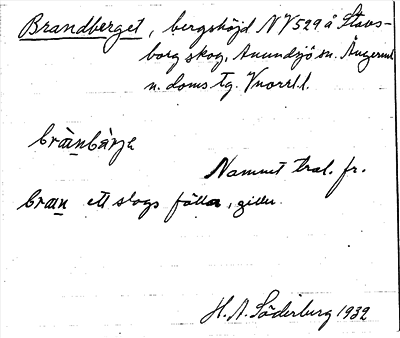 Brandberget, bergshöjd NV 529 å Stavs-
borg skog, Anundsjö sn. Ångerml
n. doms tg. Vnorrl l.
brànbárje
Namnet trol. fr.
bran ett slags fälla, giller.
H. A. Söderberg 1932